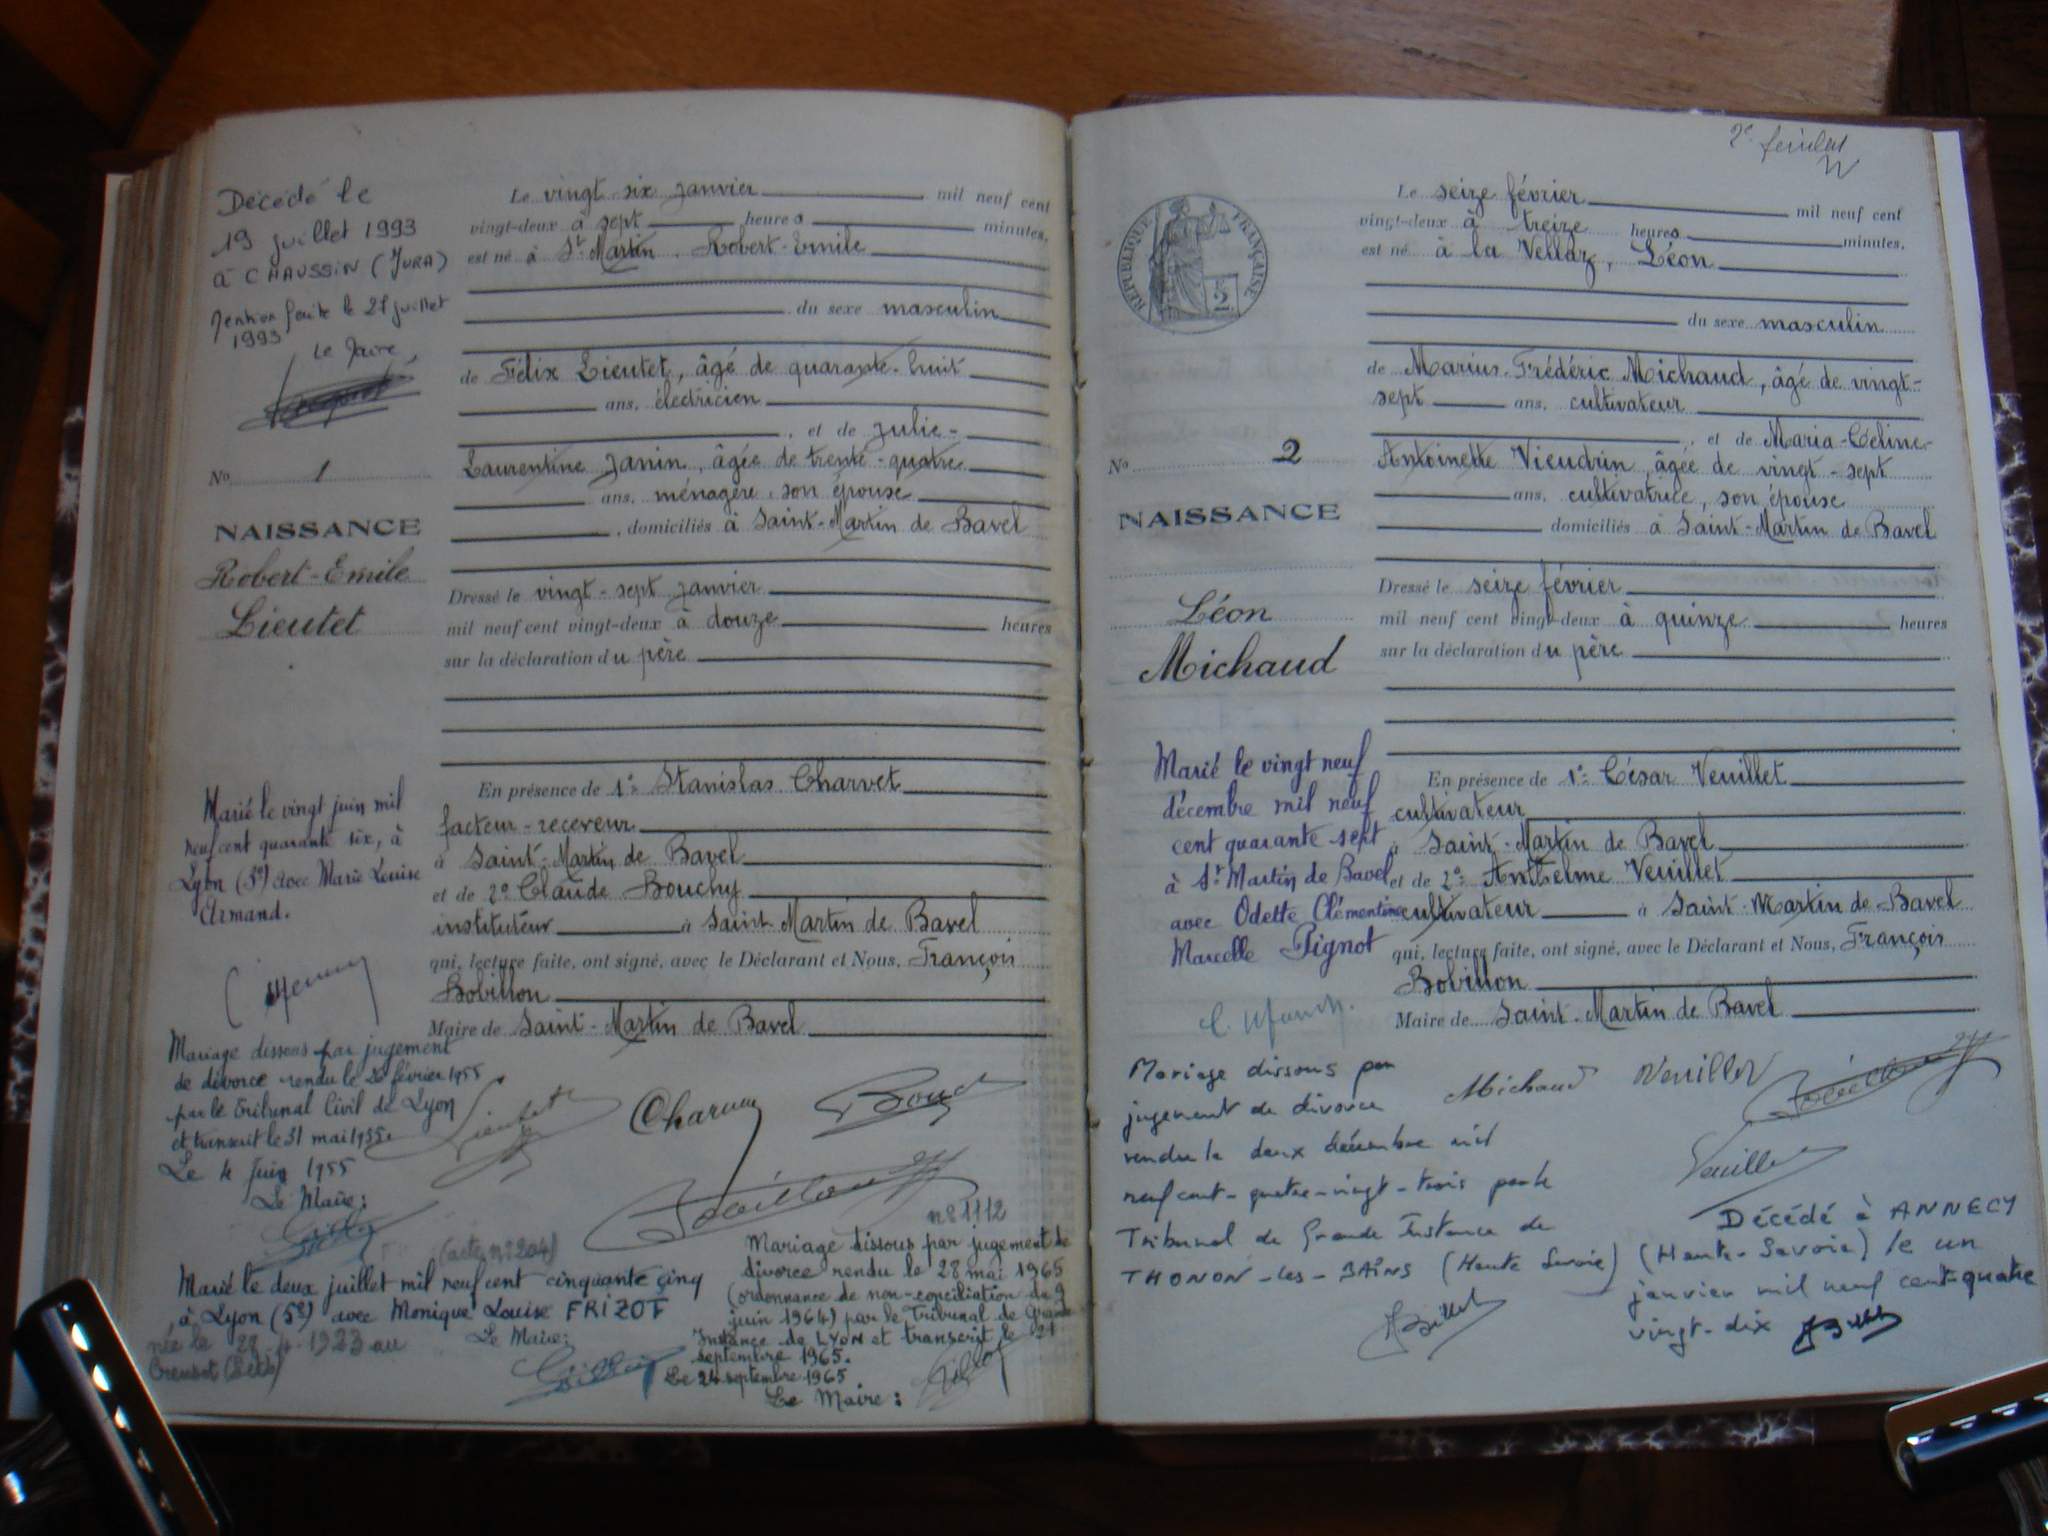 Décédé le
19 juillet 1993
à CHAUSSIN (JURA)
Mention faite le 21 juillet
1993
Le Maire,
No 1
NAISSANCE
Robert-Emile
Lieutet
Marié le vingt juin mil
neuf cent quarante six, à
Lyon (5e) avec Marie Louise
Armand.
Mariage dissous par jugement
de divorce rendu le février 1955
par le Tribunal Civil de Lyon
et transcrit le 31 mai 1955.
Le 4 Juin 1955
Le Maire:
Le vingt six janvier mil neuf cent
vingt-deux à sept heures minutes,
est né à St Martin, Robert-Emile
du sexe masculin
de Félix Lieutet, âgé de quarante-huit
ans, électricien
, et de Julie-
Laurentine Janin, âgée de trente-quatre
ans, ménagère, son épouse
, domiciliés à Saint-Martin de Bavel
Dressé le vingt-sept janvier
mil neuf cent vingt-deux à douze heures
sur la déclaration du père
En présence de 1°: Stanislas Charvet
facteur-receveur
à Saint-Martin de Bavel
et de 2° Claude Bouchy
instituteur à Saint-Martin de Bavel
qui, lecture faite, ont signé, avec le Déclarant et Nous, François
Bobillon
Maire de Saint-Martin de Bavel
Lieutet
(acte n° 204)
Marié le deux juillet mil neuf cent cinquante cinq
, à Lyon (5e) avec Monique Louise FRIZOT
née le 4.1923 au
Creusot
Le Maire:
n° 1112
Mariage dissous par jugement de
divorce rendu le 28 mai 1965
(ordonnance de non-conciliation du 9
juin 1964) par le Tribunal de Grande
Instance de LYON et transcrit le 21
septembre 1965.
Le 24 septembre 1965
Le Maire:
2e feuillet
RÉPUBLIQUE FRANÇAISE
2
No 2
NAISSANCE
Léon
Michaud
Marié le vingt neuf
décembre mil neuf
cent quarante sept
à St Martin de Bavel
avec Odette Clémentine
Marcelle Pignot
Le seize février mil neuf cent
vingt-deux à treize heures minutes,
est né à la Vellaz, Léon
du sexe masculin
de Marius-Frédéric Michaud, âgé de vingt-
sept ans, cultivateur
, et de Maria-Céline-
Antoinette Vieudrin, âgée de vingt-sept
ans, cultivatrice, son épouse
domiciliés à Saint-Martin de Bavel
Dressé le seize février
mil neuf cent vingt-deux à quinze heures
sur la déclaration du père
En présence de 1°: César Veuillet
cultivateur
à Saint-Martin de Bavel
et de 2°: Anthelme Veuillet
cultivateur à Saint-Martin de Bavel
qui, lecture faite, ont signé, avec le Déclarant et Nous, François
Bobillon
Maire de Saint-Martin de Bavel
Michaud Veuillet
Veuillet
Mariage dissous par
jugement de divorce
rendu le deux décembre mil
neuf cent-quatre-vingt-trois par le
Tribunal de Grande Instance de
THONON-les-BAINS (Haute Savoie)
Décédé à ANNECY
(Haute-Savoie) le un
janvier mil neuf cent quatre
vingt-dix